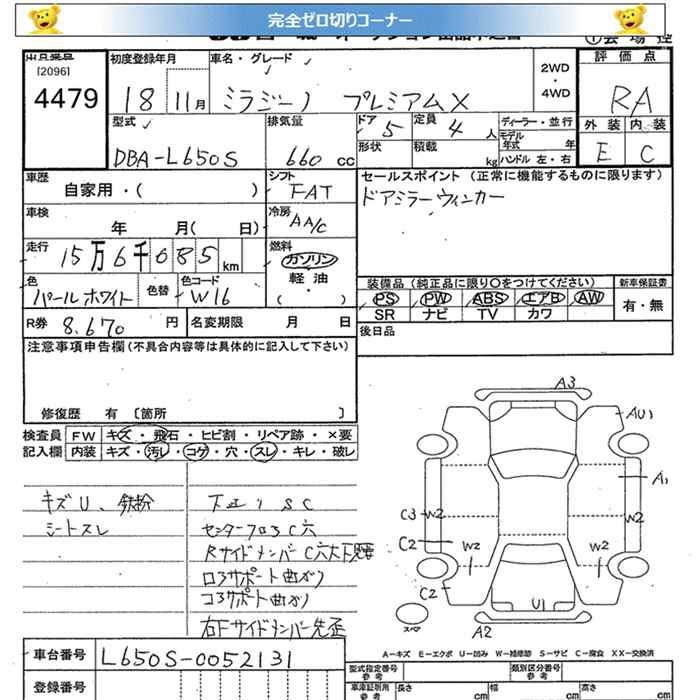 完全ゼロ切りコーナー
出品番号 初度登録年月 車名・グレード 評価点
[2096]
4479 18 11月 ミラジーノ プレミアムX 2WD・4WD RA
型式 排気量 ドア 5 定員 4人 ディーラー・並行 外装 内装
DBA-L650S 660cc 形状 積載 kg モデル年式 年 ハンドル 左・右 E C
車歴 シフト セールスポイント (正常に機能するものに限ります)
自家用・( ) FAT ドアミラーウィンカー
車検 年 月( 日) 冷房 AA/C
走行 15万6千085km 燃料 ガソリン 軽油・( )
色 パールホワイト 色替 色コード W16
装備品 (純正品に限り○をつけてください) 新車保証書
PS PW ABS エアB AW 有・無
SR ナビ TV カワ
R券 8,670円 名変期限 月 日 後日品
注意事項申告欄 (不具合内容等は具体的に記入して下さい)
修復歴 有 [箇所 ]
検査員記入欄 FW キズ・飛石・ヒビ割・リペア跡・×要
内装 キズ・汚レ・コゲ・穴・スレ・キレ・破レ
キズU、鉄粉 下廻りSC
シートスレ センターフロアC穴
RサイドメンバーC穴大
ロアサポート曲がり
コアサポート曲がり
右Fサイドメンバー先歪
A3
AU1
A1
C3 W2 W2
C2 W2 W2
C2 U1
スペア A2
A-キズ E-エクボ U-凹み W-補修跡 S-サビ C-腐食 XX-交換済
車台番号 L650S-0052131 型式指定番号 類別区分番号
登録番号 車庫証明用参考 長さ cm 幅 cm 高さ cm